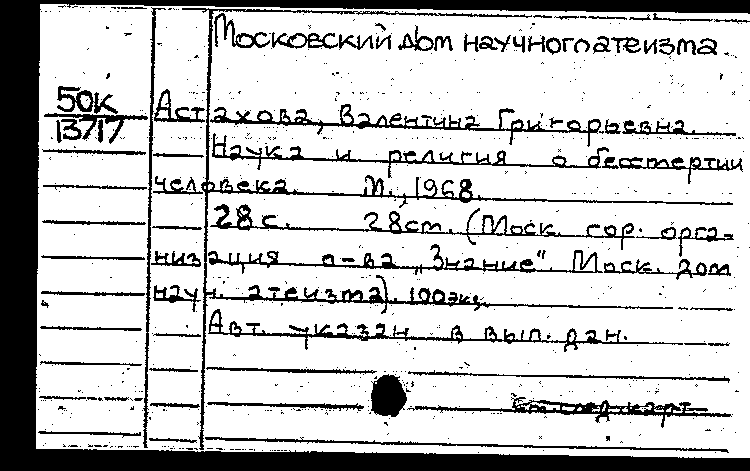 Московский дом научного атеизма.
50к
13717
Астахова, Валентина Григорьевна.
Наука и религия о бессмертии
человека. М., 1968.
28 с. 28 см. (Моск. гор. орга-
низация о-ва „Знание“. Моск. дом
науч. атеизма). 100 экз.
Авт. указан в вып. дан.
См. след. карт.